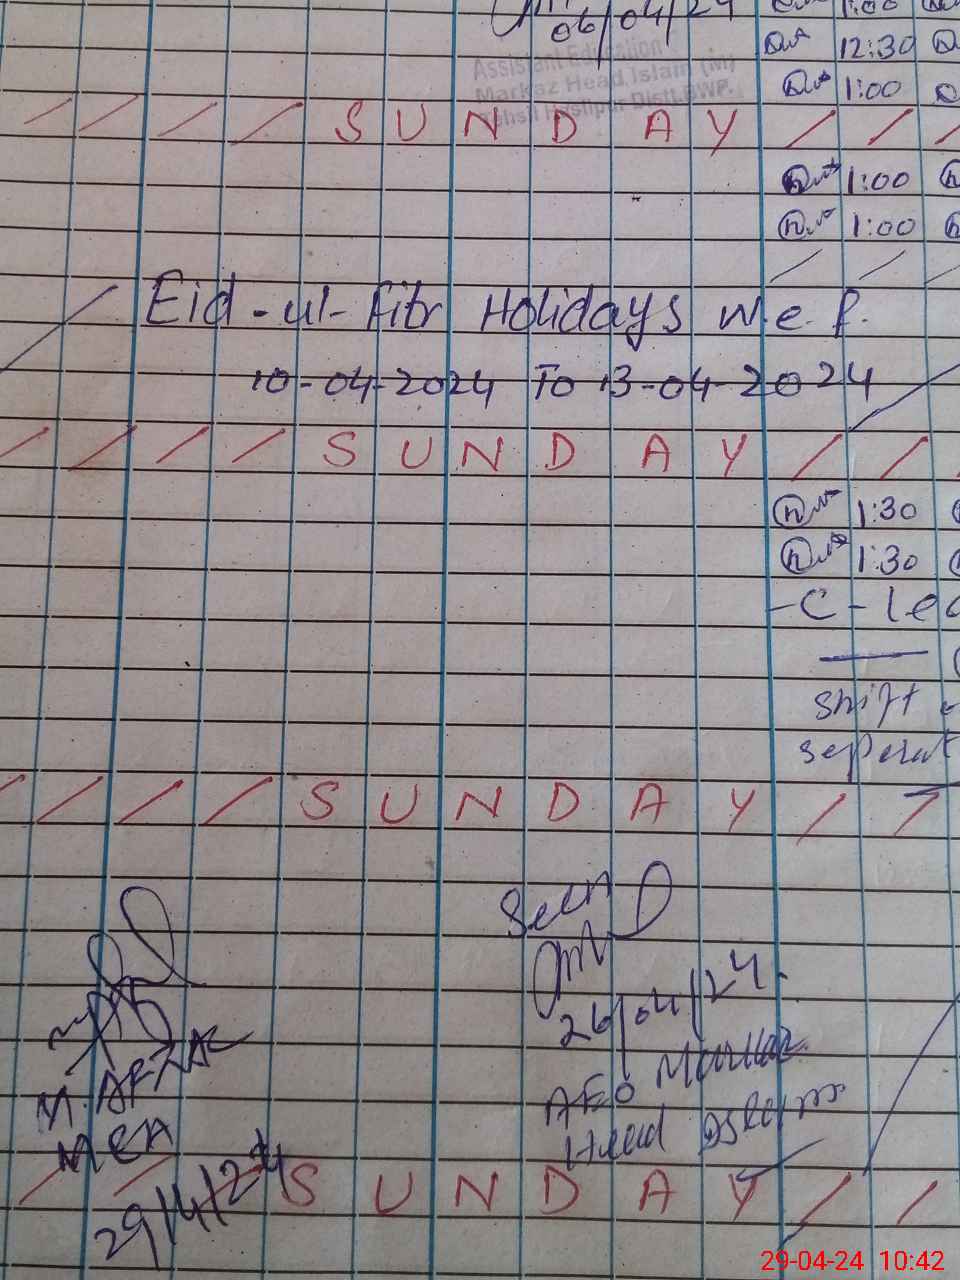 06/04/24
1:00
12:30
Assistant Education
Markaz Head Islam (M)
1:00
Tehsil Hasilpur Distt.BWP.
/ / / / S U N D A Y / / /
1:00
1:00
Eid-ul-Fitr Holidays w.e.f.
10-04-2024 To 13-04-2024
/ / / / S U N D A Y / /
1:30
1:30
-C-lea
shift
seperat
/ / / / S U N D A Y / /
Seen
26/04/24.
M. AFZAL
AEO Markaz
MEA
Head Islam
29/4/24
/ / S U N D A Y / /
29-04-24 10:42